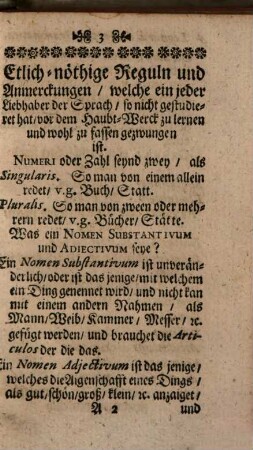 3
Etlich-nöthige Reguln und
Anmerckungen / welche ein jeder
Liebhaber der Sprach / so nicht gestudie-
ret hat / vor dem Haubt-Werck zu lernen
und wohl zu fassen gezwungen
ist.
NUMERI oder Zahl seynd zwey / als
Singularis. So man von einem allein
redet / v.g. Buch / Statt.
Pluralis. So man von zween oder meh-
rern redet / v.g. Bücher / Stätte.
Was ein NOMEN SUBSTANTIVUM
und ADIECTIVUM seye?
Ein Nomen Substantivum ist unverän-
derlich / oder ist das jenige / mit welchem
ein Ding genennet wird / und nicht kan
mit einem andern Nahmen / als
Mann / Weib / Kammer / Messer / ꝛc.
gefügt werden / und brauchet die Arti-
culos der die das.
Ein Nomen Adjectivum ist das jenige /
welches die Aigenschafft eines Dings /
als gut / schön / groß / klein / ꝛc. anzaiget /
A 2 und